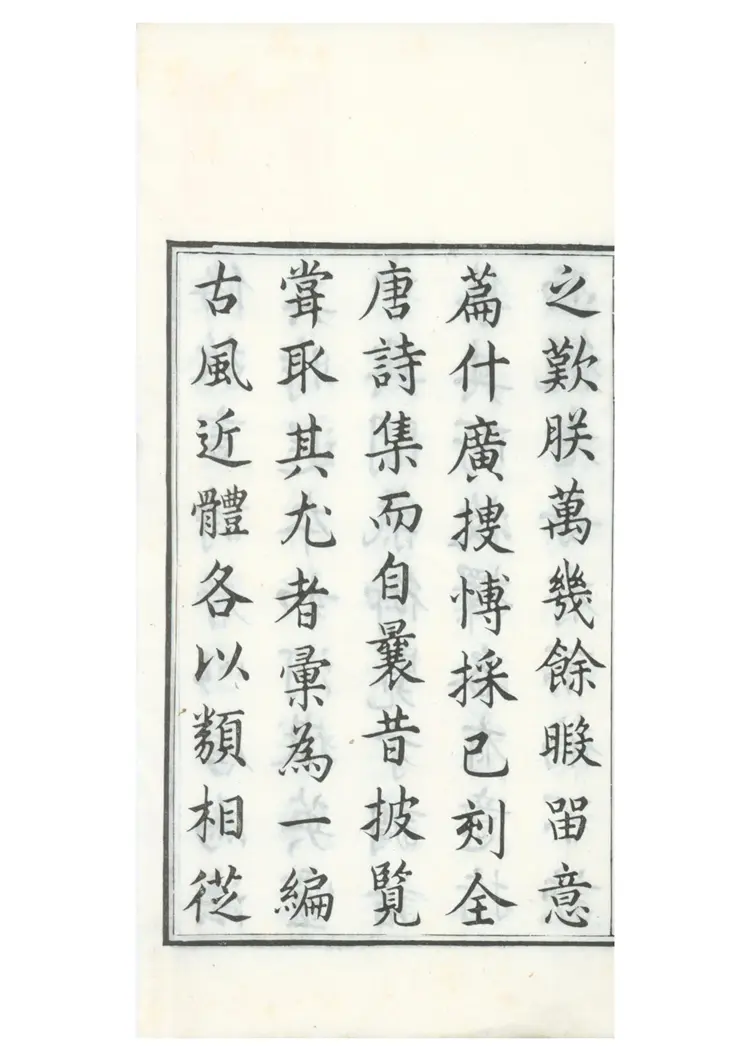 之歎朕萬幾餘暇畱意
篇什廣搜愽採已刻全
唐詩集而自曩昔披覽
甞取其尤者彙為一編
古風近體各以類相從